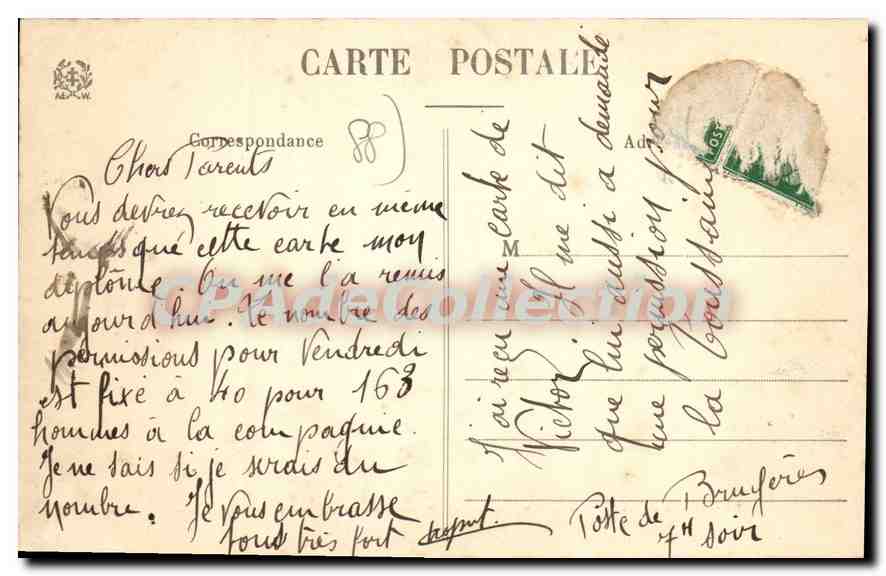 CARTE POSTALE
Correspondance
Chers Parents
Vous devrez recevoir en même
temps que cette carte mon
diplôme. On me l'a remis
aujourd'hui. Le nombre des
permissions pour Vendredi
est fixé à 40 pour 163
hommes à la compagnie.
Je ne sais si je serais du
nombre. Je vous embrasse
tous très fort
88
M
J'ai reçu une carte de
Victor. Il me dit
que lui aussi a demandé
une permission pour
la Toussaint
Poste de Bruyères
7H soir
CPAdeCollection